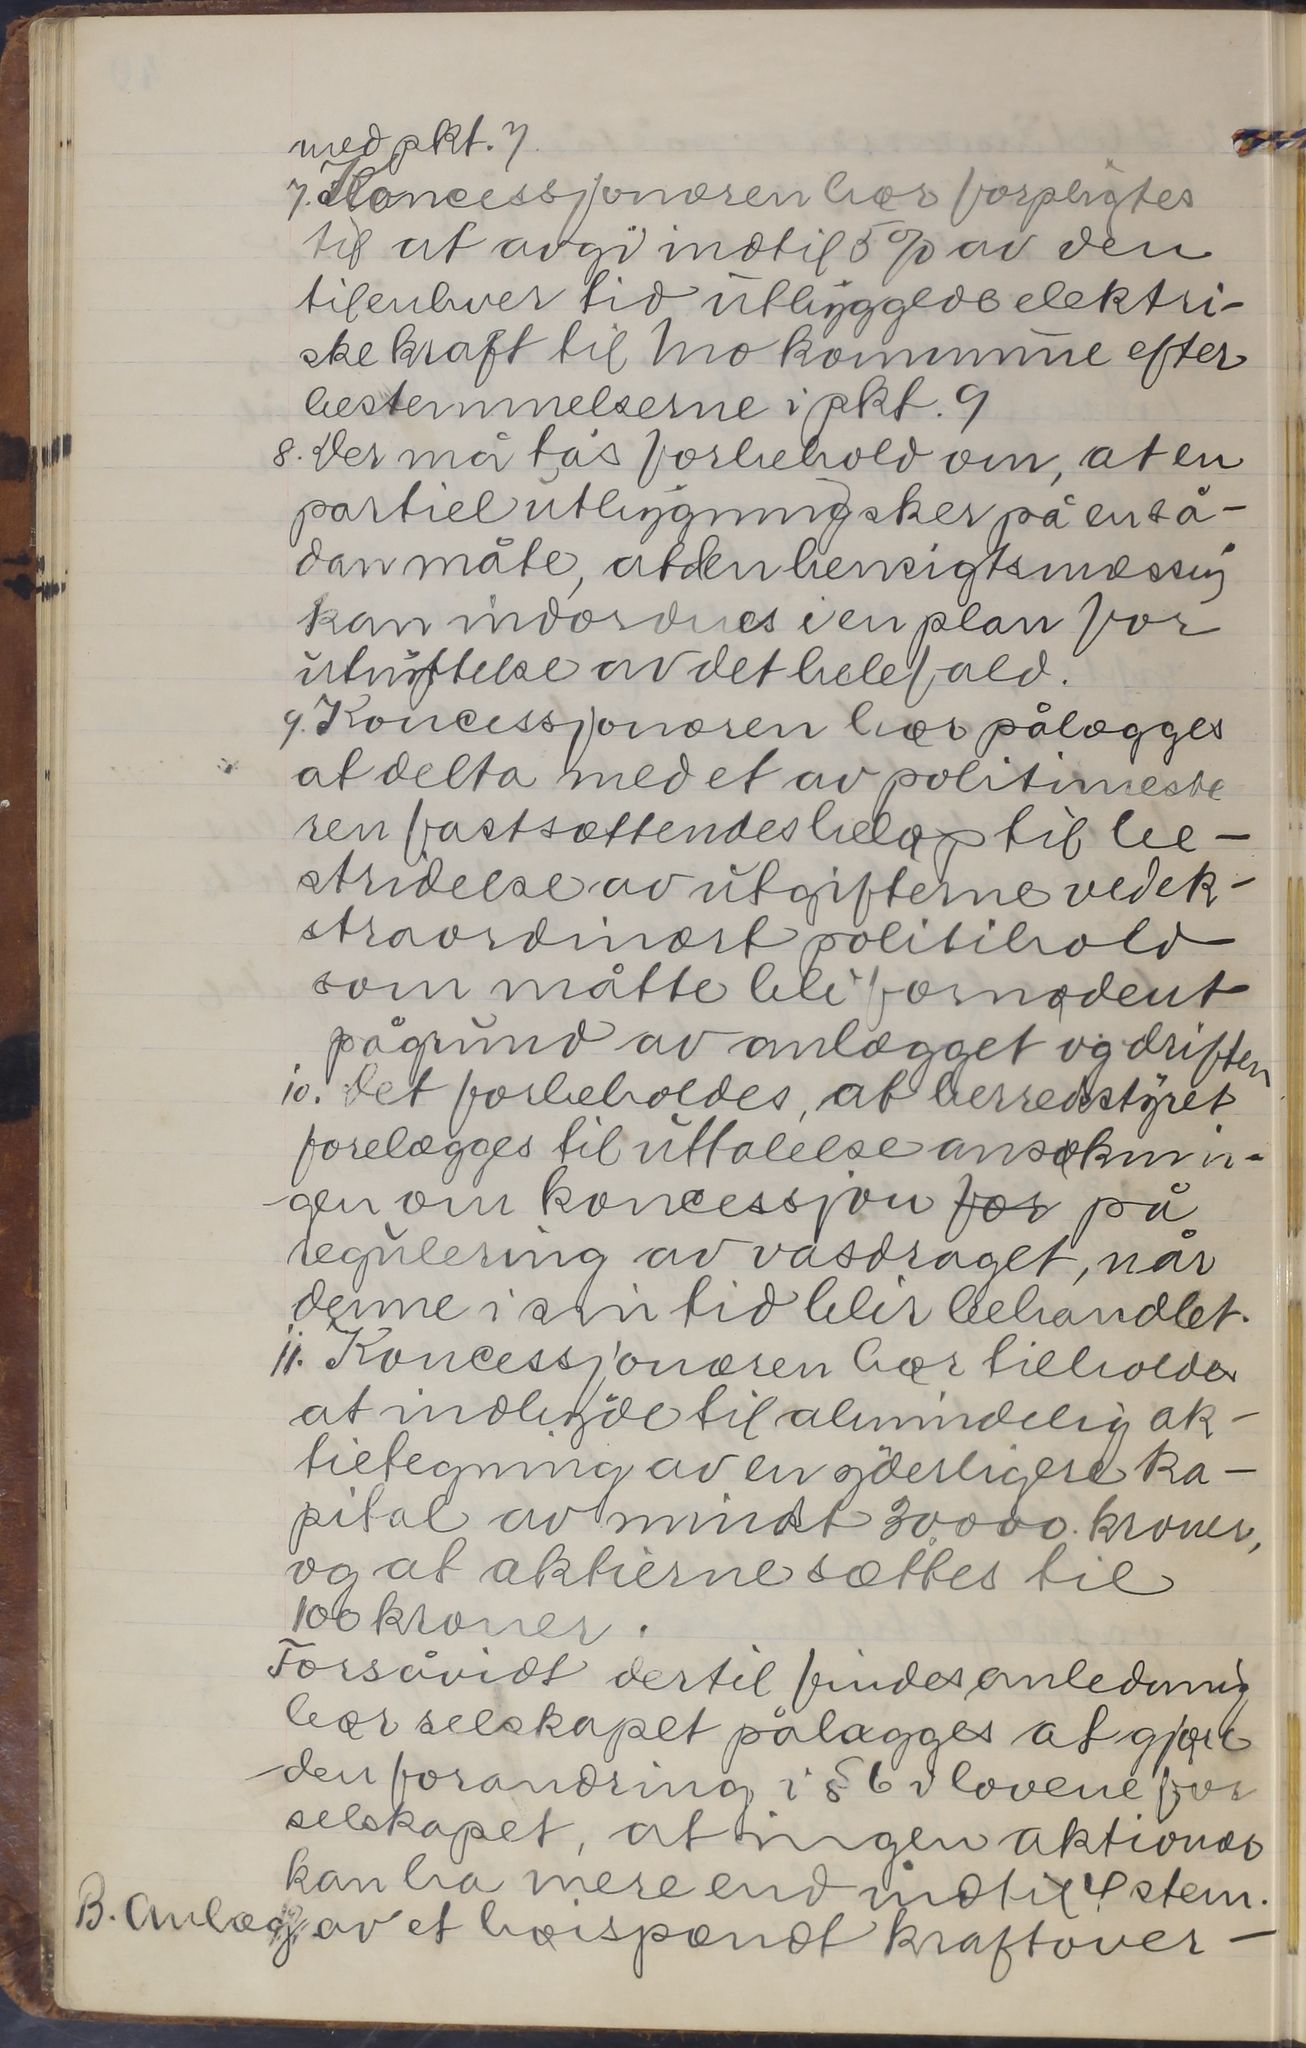 med pkt. 7.
7. Koncessjonæren bør forpligtes
til at avgi indtil 5 % av den
tilenhver tid utbyggede elektri-
ske kraft til Mo kommune efter
bestemmelserne i pkt. 9
8. Der må tas forbehold om, at en
partiel utbygning sker på en så-
dan måte, at den hensigtsmæssig
kan indordnes i en plan for
utnyttelse av det hele fald.
9. Koncessjonæren bør pålægges
at delta med et av politimeste
ren fastsættendes beløp til be-
stridelse av utgifterne ved ek-
straordinært politihold
som måtte bli fornødent
pågrund av anlægget og driften
10. Det forbeholdes, at herredstyret
forelægges til uttalelse ansøknin-
gen om koncessjon for på
regulering av vasdraget, når
denne i sin tid blir behandlet.
11. Koncessjonæren bør tilholdes
at indbyde til almindelig ak-
tietegning av en yderligere ka-
pital av mindst 30000 kroner,
og at aktierne sættes til
100 kroner.
Forsåvidt dertil findes anledning
bør selskapet pålægges at gjøre
den forandring i § 6 i lovene for
selskapet, at ingen aktionær
kan ha mere end indtil 4 stem.
B. Anlæg av et høispændt kraftover-